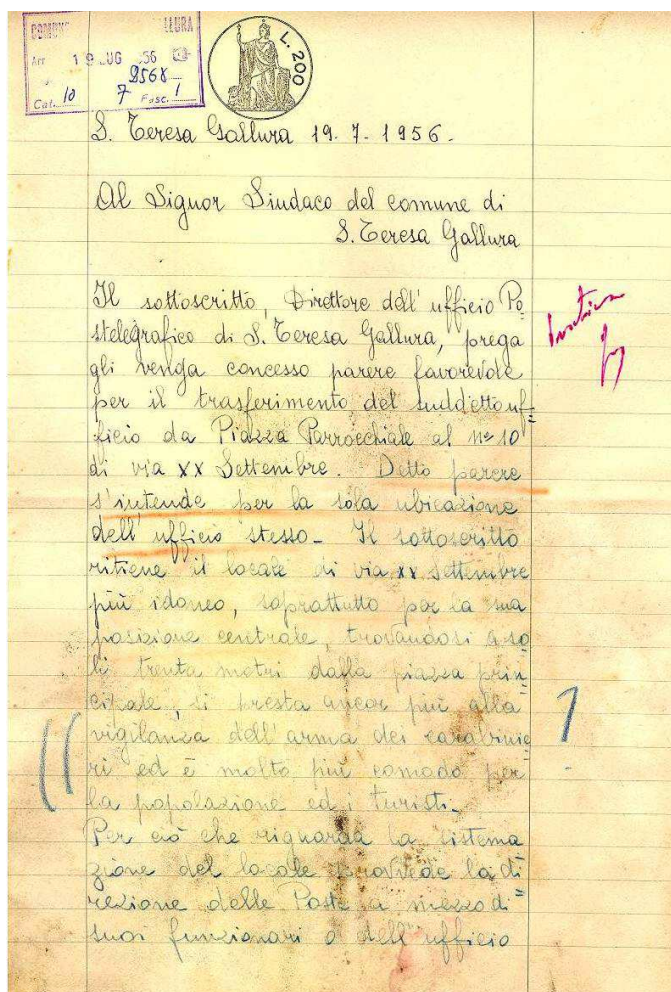 COMUNE GALLURA
Arr. 19 LUG 1956
9568
Cat. 10 7 Fasc. 1
L. 200
S. Teresa Gallura 19. 7. 1956.
Al Signor Sindaco del comune di
S. Teresa Gallura
Il sottoscritto, Direttore dell' ufficio Po=
stelegrafico di S. Teresa Gallura, prega
gli venga concesso parere favorevole
per il trasferimento del suddetto uf=
ficio da Piazza Parrocchiale al nº 10
di via XX Settembre. Detto parere
s'intende per la sola ubicazione
dell' ufficio stesso - Il sottoscritto
ritiene il locale di via XX settembre
più idoneo, soprattutto per la sua
posizione centrale, trovandosi a so=
li trenta metri dalla piazza prin=
cipale, si presta ancor più alla
vigilanza dell' arma dei carabinie
ri ed è molto più comodo per
la popolazione ed i turisti.
Per ciò che riguarda la sistema
zione del locale provvede la di=
rezione delle Poste a mezzo di
suoi funzionari o dell' ufficio